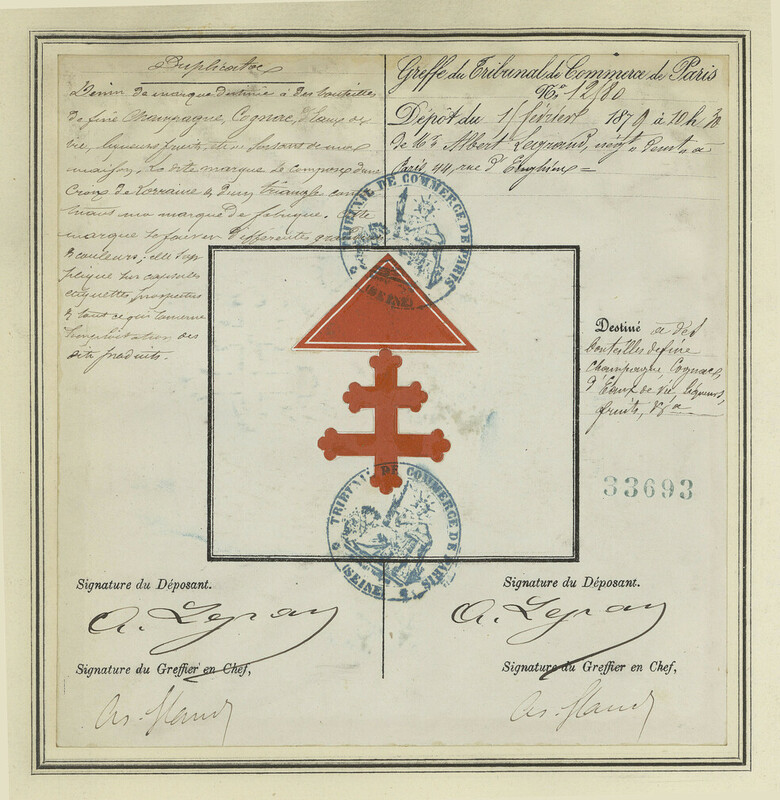 Duplicata
Dessin de marque destiné à des bouteilles
de fine Champagne, Cognac, d'Eaux de
vie, liqueurs, fruits, etc. sortant de ma
maison. La dite marque se compose d'une
Croix de Lorraine & d'un triangle
ma marque de fabrique. Cette
marque se fait en différentes grandeurs
& couleurs; elle s'ap
plique sur capsules
étiquettes prospectus
& tout ce qui concerne
des
dits produits.
Greffe du Tribunal de Commerce de Paris
No. 12180
Dépôt du 15 février 1879 à 10h 30
de Mr. Albert Legrand, négt. demt. à
Paris 44 rue d'Enghien =
TRIBUNAL DE COMMERCE DE PARIS
(SEINE)
Destiné à des
bouteilles de fine
Champagne, Cognac,
d'Eaux de vie, liqueurs,
fruits, &a
33693
TRIBUNAL DE COMMERCE DE PARIS
(SEINE)
Signature du Déposant.
A. Legran
Signature du Greffier en Chef,
Signature du Déposant.
A. Legran
Signature du Greffier en Chef,